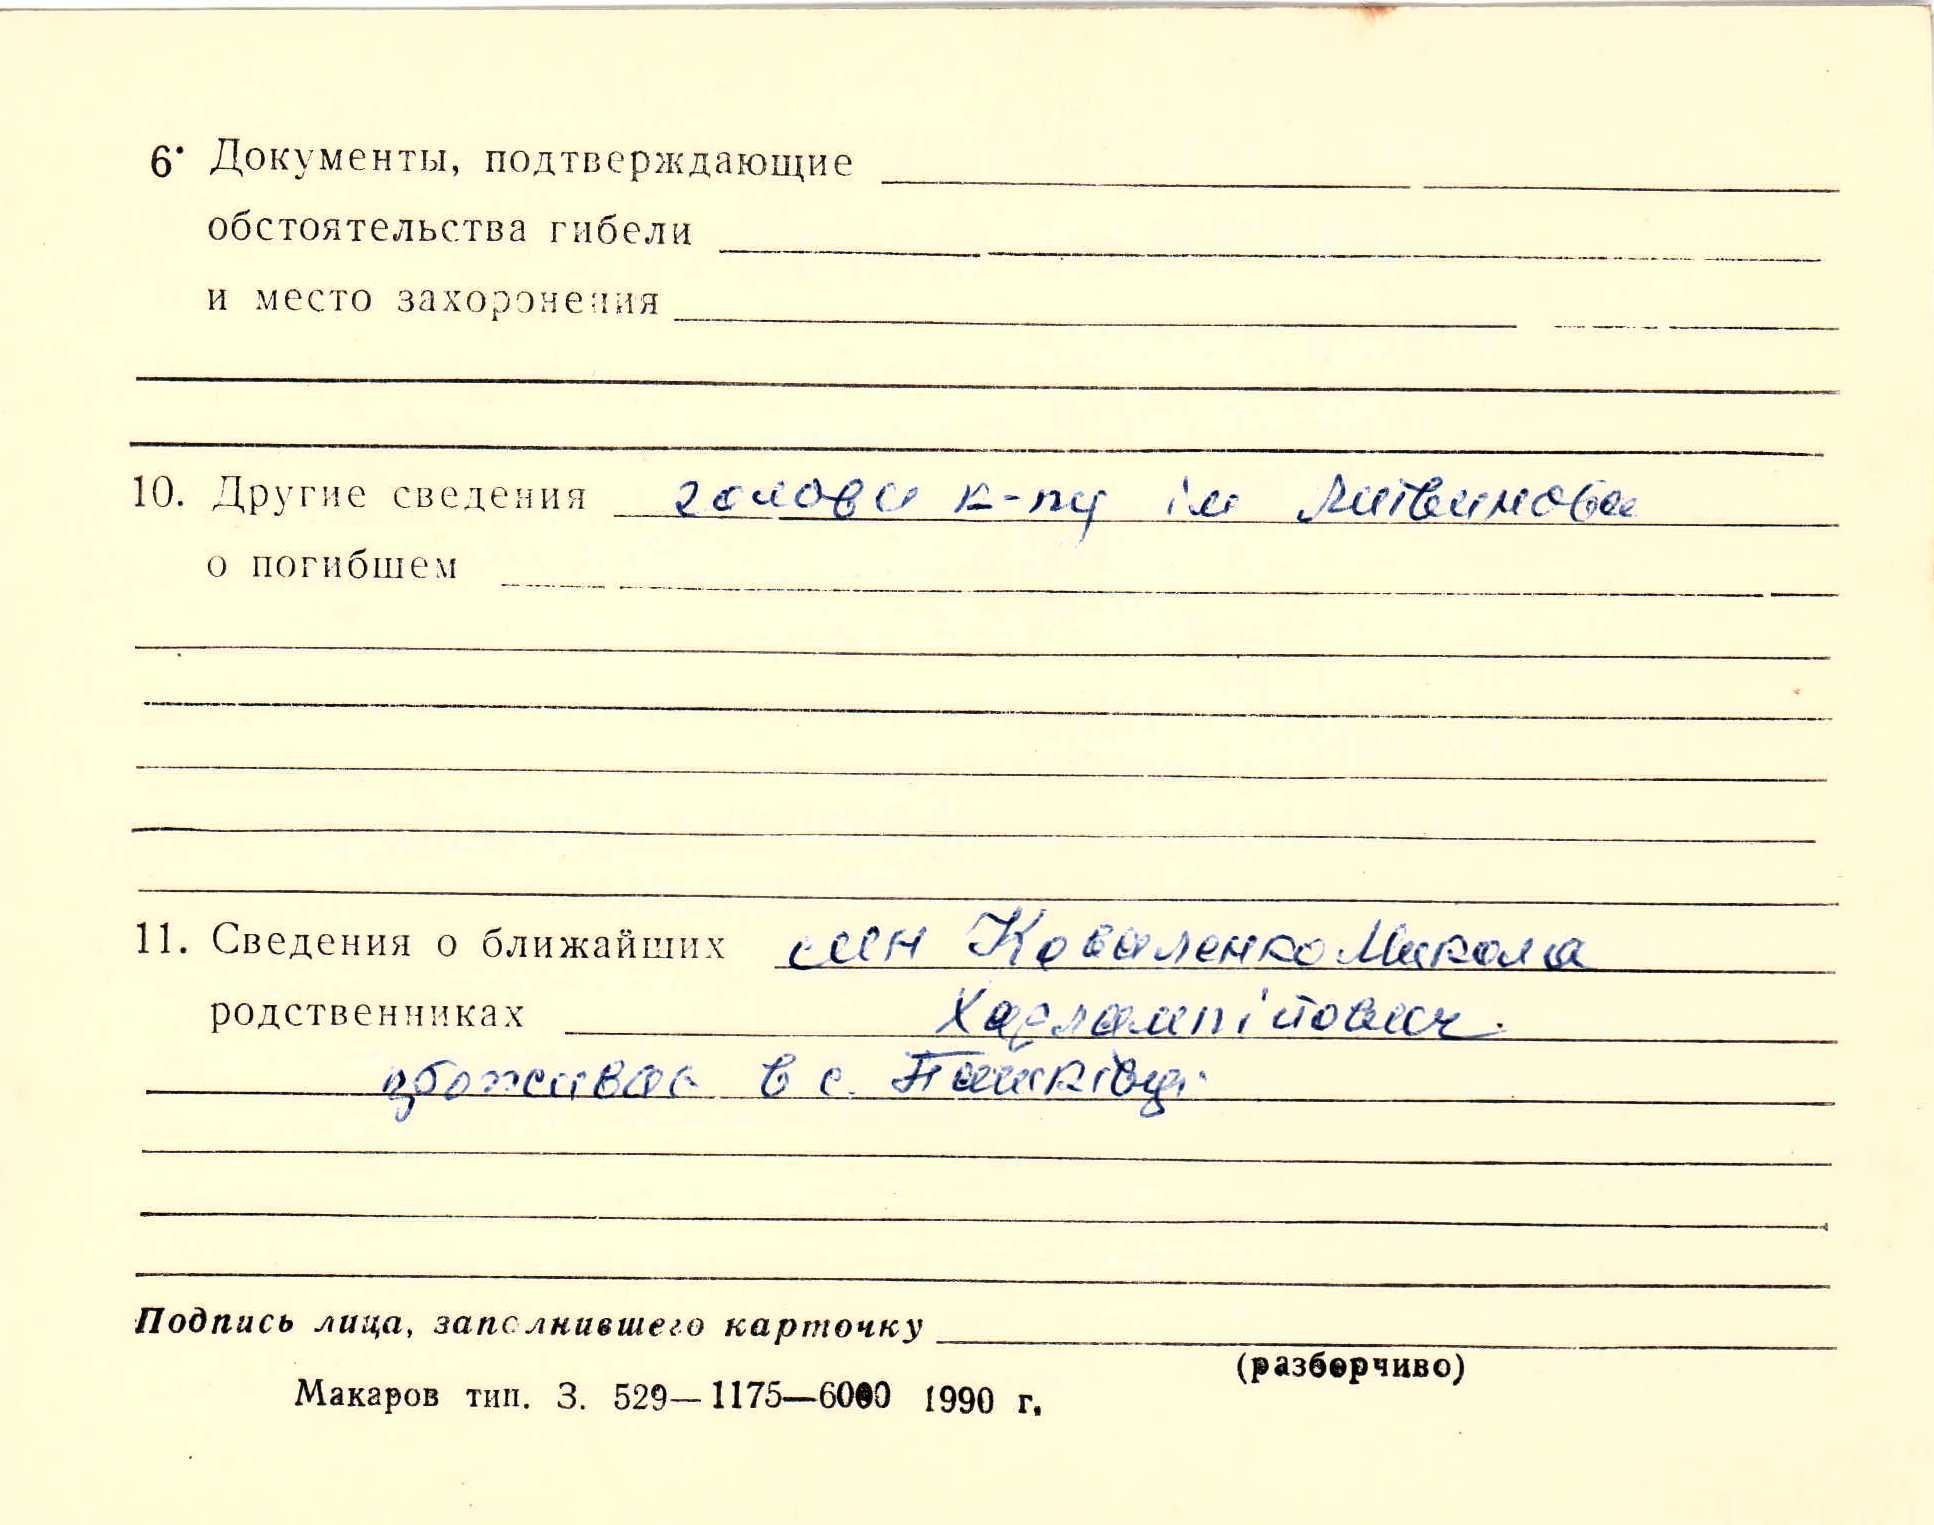 6. Документы, подтверждающие
обстоятельства гибели
и место захоронения
10. Другие сведения голови к-пу ім Литвинова
о погибшем
11. Сведения о ближайших син Коваленко Микола
родственниках Харлампійович.
в с. Пашківці
Подпись лица, заполнившего карточку
(разборчиво)
Макаров тип. З. 529—1175—6000 1990 г.